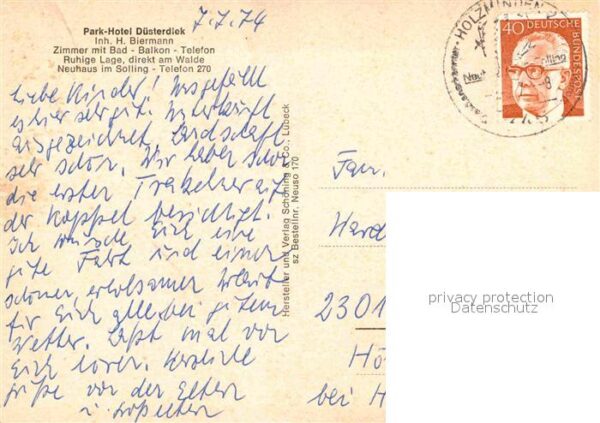 7.7.74
Park-Hotel Düsterdiek
Inh. H. Biermann
Zimmer mit Bad - Balkon - Telefon
Ruhige Lage, direkt am Walde
Neuhaus im Solling - Telefon 270
Liebe Kinder! Uns gefällt
es hier sehr gut. Unterkunft
ausgezeichnet, Landschaft
sehr schön. Wir haben schon
die ersten Trakehner auf
der Koppel besichtigt.
Ich wünsche Euch eine
gute Fahrt und einen
schönen, erholsamen Urlaub
für Euch alle bei gutem
Wetter. Laßt mal von
Euch hören. Herzliche
Grüße von den Eltern
u. Großeltern
Hersteller und Verlag Schöning & Co., Lübeck
sz Bestellnr. Neuso 170
HOLZMINDEN
40 DEUTSCHE BUNDESPOST
Fam.
Hard
2301
bei H
privacy protection
Datenschutz